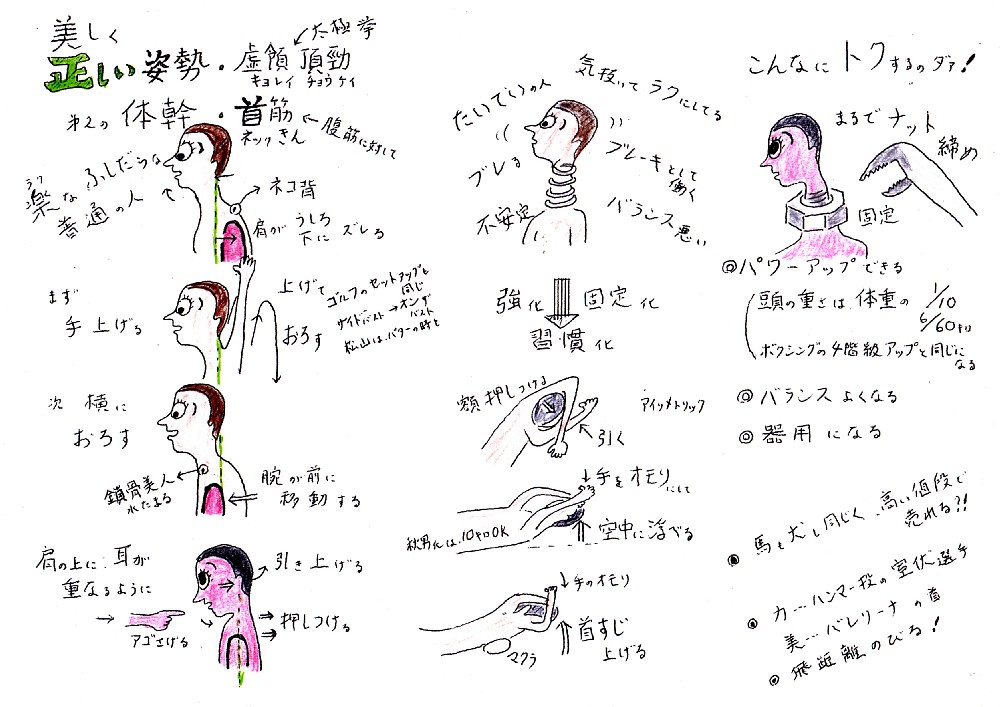 美しく
正しい姿勢・虚領頂勁 ←太極拳
キョレイ チョウケイ
第2の 体幹・首筋 ←腹筋に対して
ネックきん
楽な ふしだらな
ラク
普通の人
→ネコ背
肩が うしろ
下に ズレる
まず
手 上げる
上げて
おろす
ゴルフのセットアップと
同じ
サイドバスト→オンザ
バスト
松山は、パターの時も
次 横に
おろす
鎖骨美人
水たまる
腕が前に
移動する
肩の上に、耳が
重なるように
アゴさげる
引き上げる
押しつける
たいていの人
気抜いてラクにしてる
ブレる
ブレーキとして
働く
不安定
バランス悪い
強化 固定化
習慣化
額押しつける
アイソメトリック
引く
手をオモリにして
秋男化は、10キロOK
空中に浮べる
手のオモリ
首すじ
上げる
マクラ
こんなに トクするのダァ!
まるでナット
締め
固定
◎パワーアップできる
頭の重さは 体重の 1/10
6/60キロ
ボクシングの4階級アップと同じに
なる
◎バランスよくなる
◎器用になる
◉馬も犬も同じく、高い値段で
売れる?!
◉力…ハンマー投の室伏選手
美…バレリーナの首
◎飛距離のびる!